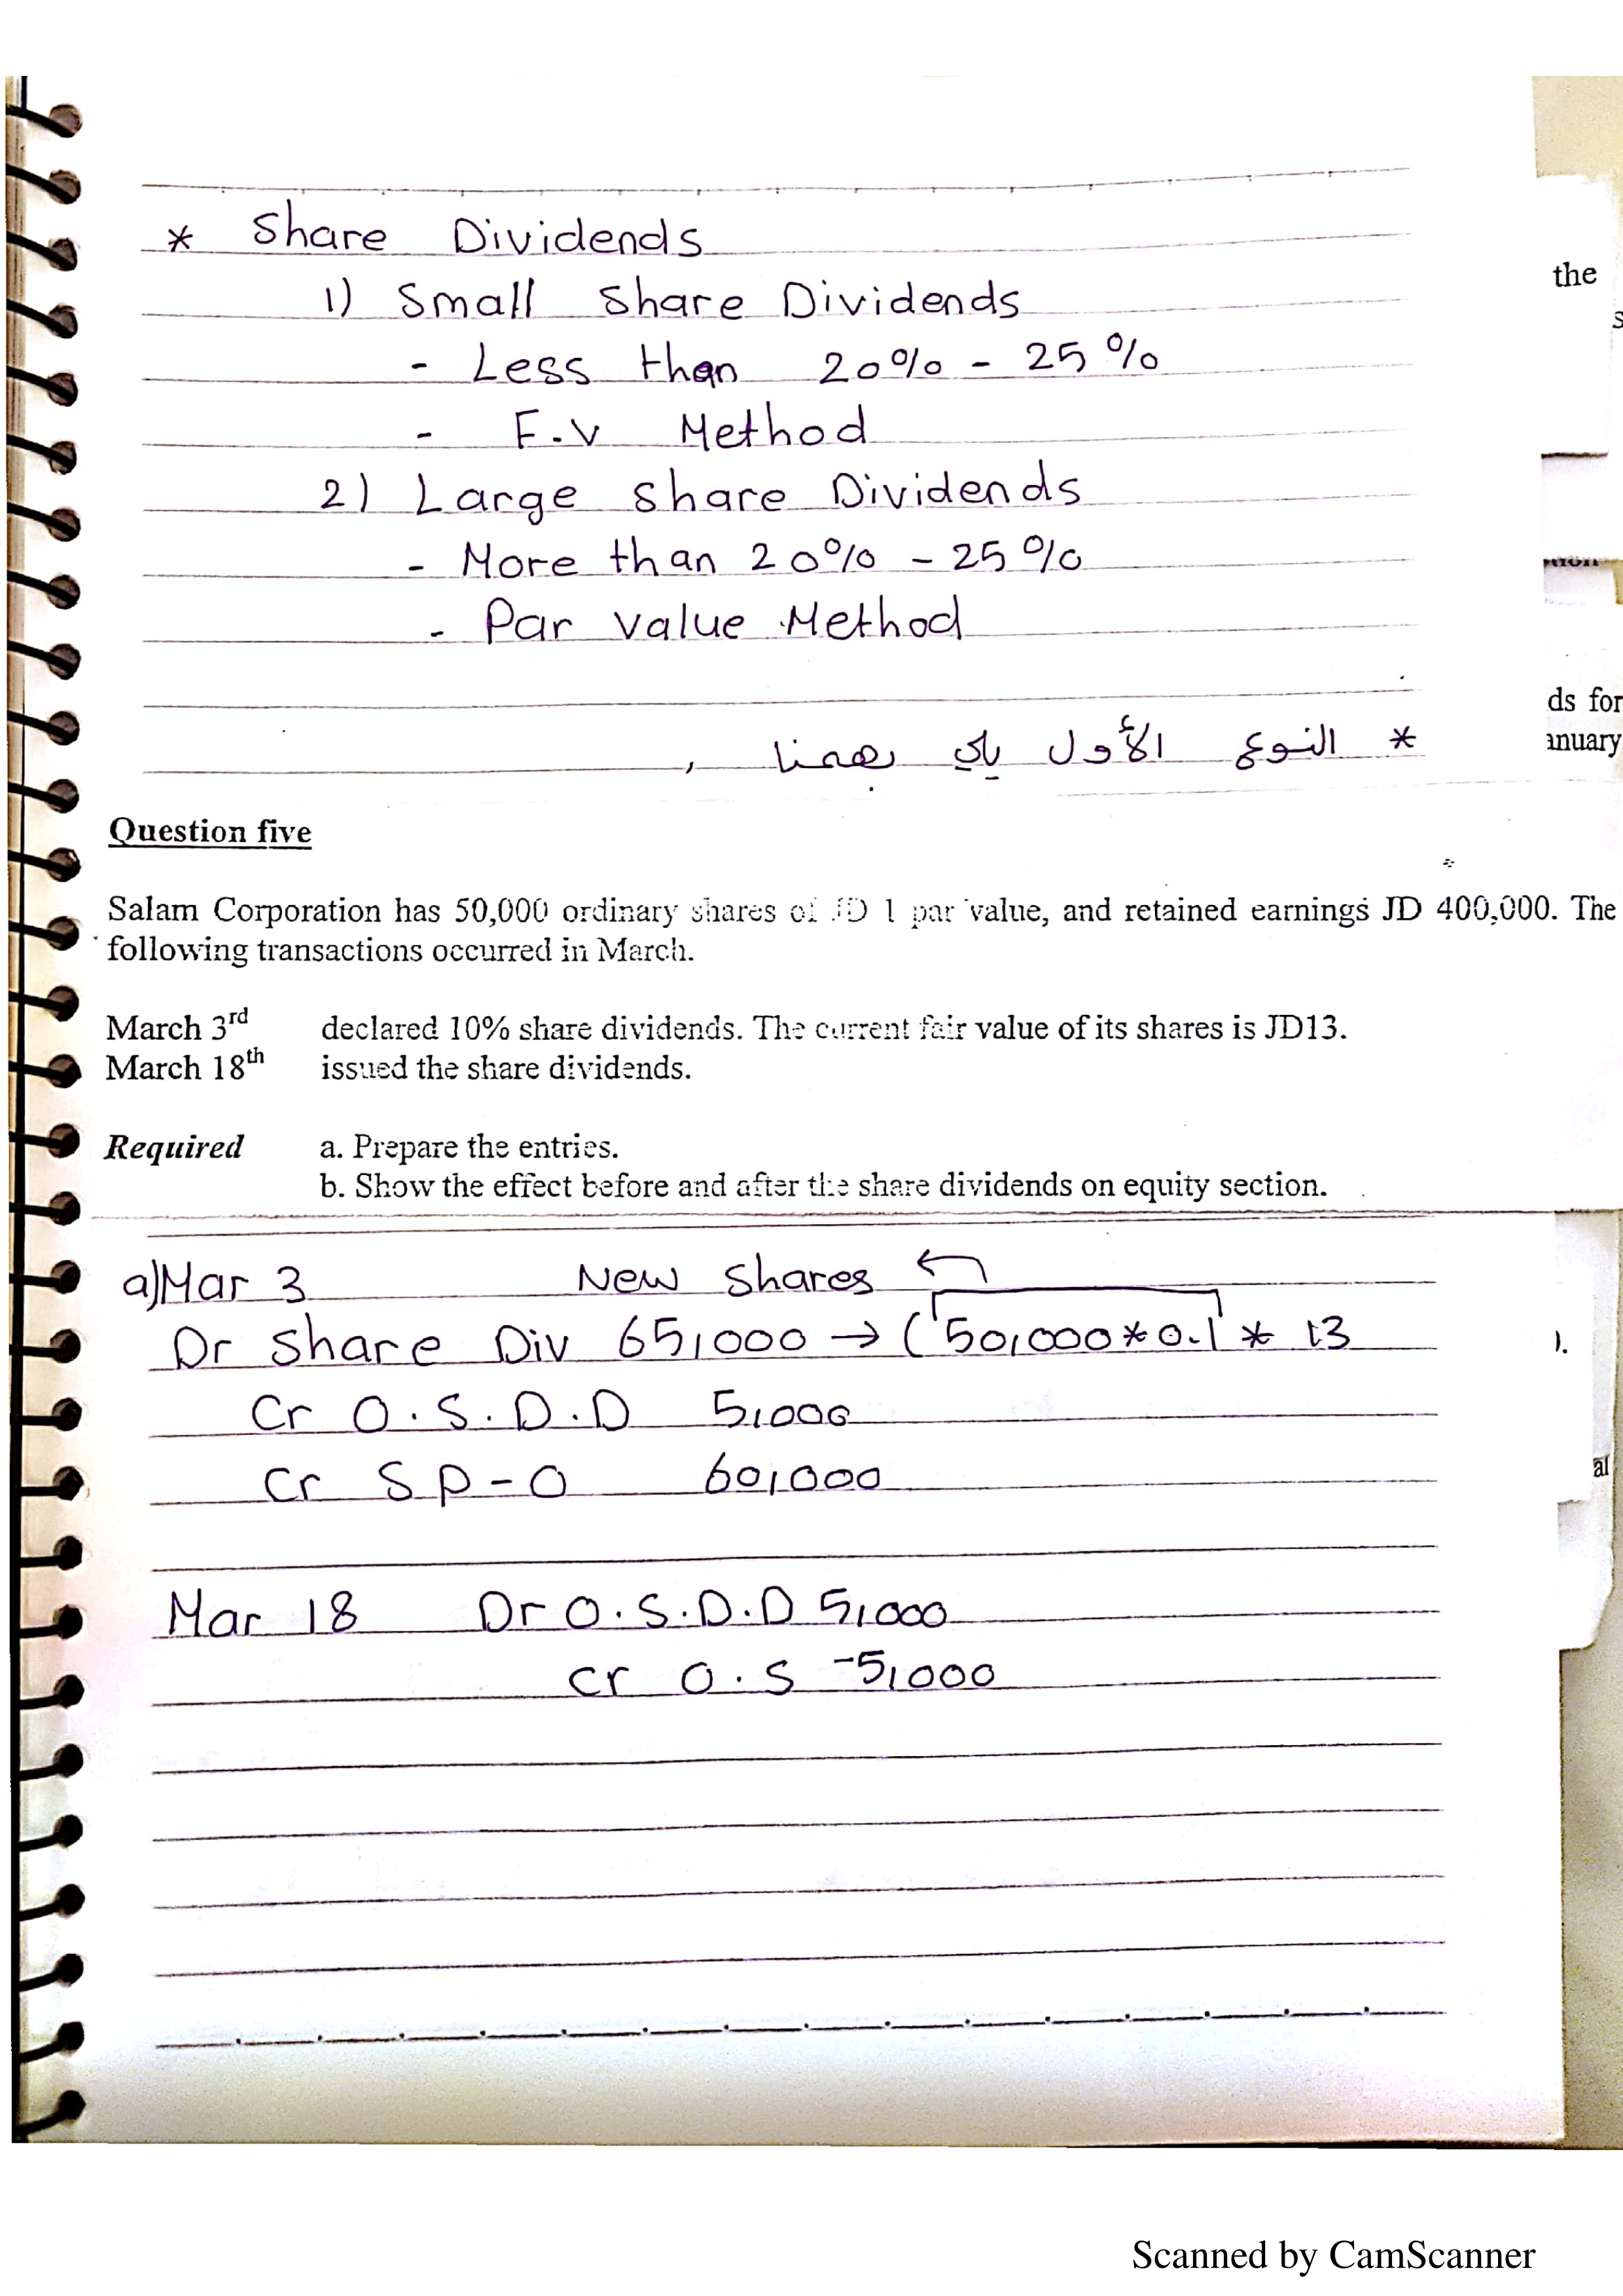 * Share Dividends
1) Small Share Dividends
- Less than 20% - 25%
- F.V Method
2) Large Share Dividends
- More than 20% - 25%
- Par value Method
* النوع الأول يلي بهمنا
the
s
ds for
anuary
Question five
Salam Corporation has 50,000 ordinary shares of JD 1 par value, and retained earnings JD 400,000. The
following transactions occurred in March.
March 3rd declared 10% share dividends. The current fair value of its shares is JD13.
March 18th issued the share dividends.
Required a. Prepare the entries.
b. Show the effect before and after the share dividends on equity section.
a) Mar 3 New shares ←
Dr Share Div 65,000 → (50,000 * 0.1 * 13
Cr O.S.D.D 5,000
Cr S P - O 60,000
Mar 18 Dr O.S.D.D 5,000
Cr O.S 5,000
).
al
Scanned by CamScanner